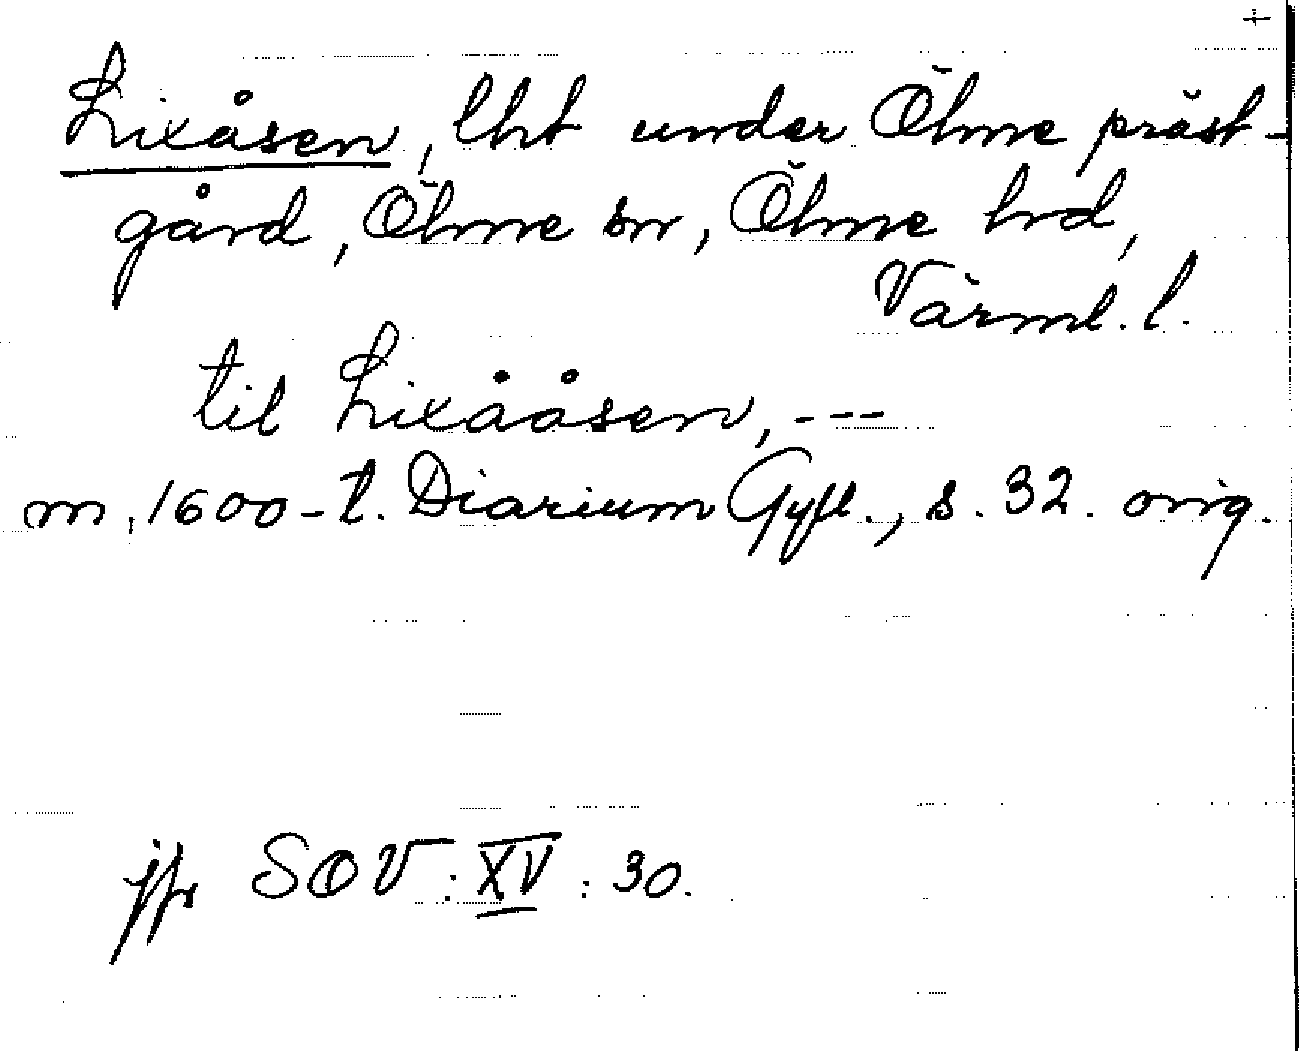 +
Lixåsen, lht under Ölme präst-
gård, Ölme sn, Ölme hd,
Värml. l.
til Lixååsen, ---
m. 1600-t. Diarium Gyll., s. 32. orig.
jfr SOV: XV: 30.